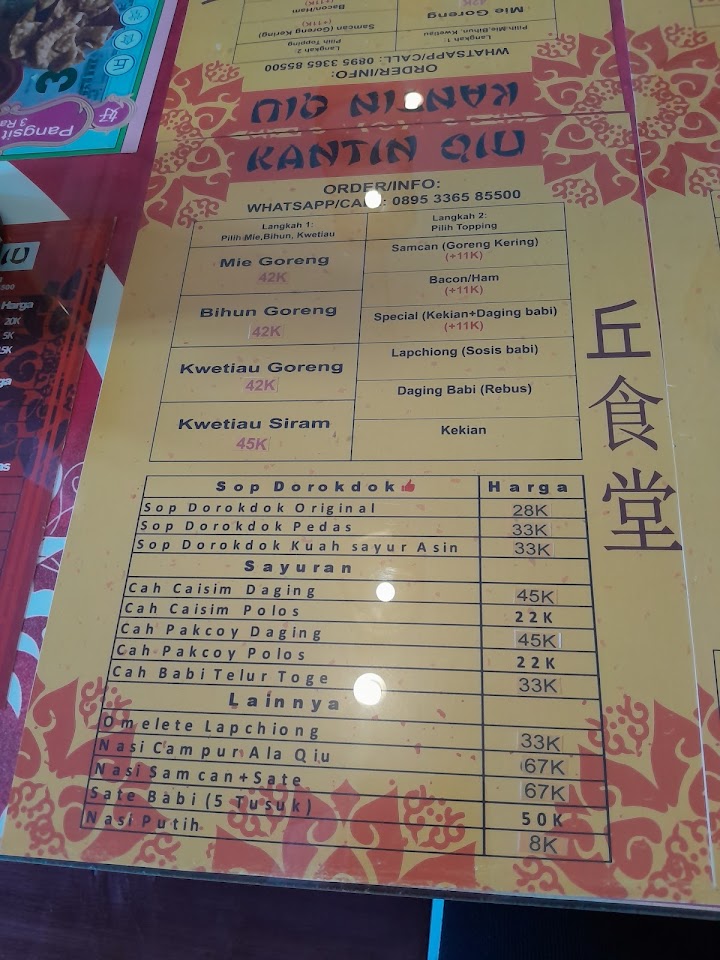 Pangsit
KANTIN QIU
ORDER/INFO:
WHATSAPP/CALL: 0895 3365 85500
Langkah 1:
Pilih-Mie,Bihun, Kwetiau
Langkah 2:
Pilih Topping
Mie Goreng
42K
Samcan (Goreng Kering)
(+11K)
Bacon/Ham
(+11K)
KANTIN QIU
ORDER/INFO:
WHATSAPP/CALL : 0895 3365 85500
Langkah 1:
Pilih-Mie,Bihun, Kwetiau
Mie Goreng
42K
Bihun Goreng
42K
Kwetiau Goreng
42K
Kwetiau Siram
45K
Langkah 2:
Pilih Topping
Samcan (Goreng Kering)
(+11K)
Bacon/Ham
(+11K)
Special (Kekian+Daging babi)
(+11K)
Lapchiong (Sosis babi)
Daging Babi (Rebus)
Kekian
丘食堂
Sop Dorokdok Harga
Sop Dorokdok Original 28K
Sop Dorokdok Pedas 33K
Sop Dorokdok Kuah sayur Asin 33K
Sayuran
Cah Caisim Daging 45K
Cah Caisim Polos 22K
Cah Pakcoy Daging 45K
Cah Pakcoy Polos 22K
Cah Babi Telur Toge 33K
Lainnya
Omelete Lapchiong 33K
Nasi Campur Ala Qiu 67K
Nasi Samcan+Sate 67K
Sate Babi (5 Tusuk) 50K
Nasi Putih 8K
Harga
20K
5K